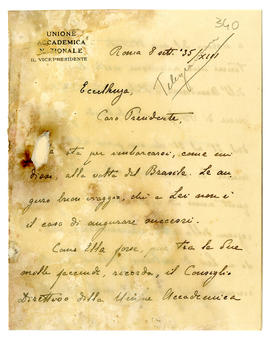 340
UNIONE
ACCADEMICA
NAZIONALE
IL VICEPRESIDENTE
Roma 8 sett. '35/XIII
Eccellenza,
Caro Presidente,
sta per imbarcarsi, come mi
disse, alla volta del Brasile. Le au-
guro buon viaggio, chè a Lei non è
il caso di augurare successi.
Come Ella forse, pur tra le sue
molte faccende, ricorda, il Consiglio
Direttivo della Unione Accademica